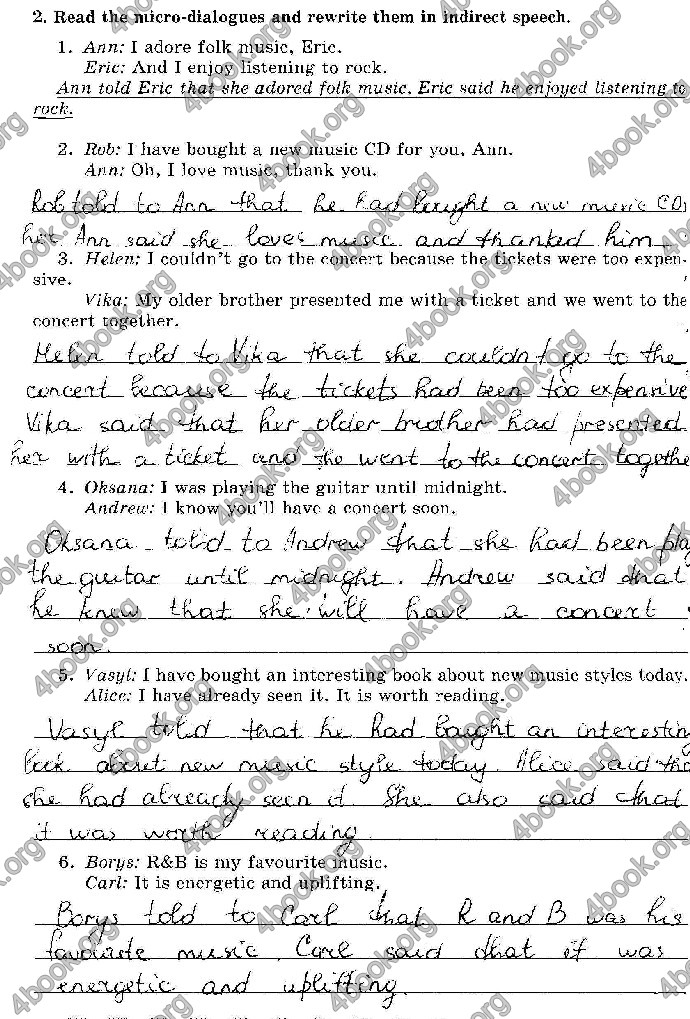 2. Read the micro-dialogues and rewrite them in indirect speech.
1. Ann: I adore folk music, Eric.
Eric: And I enjoy listening to rock.
Ann told Eric that she adored folk music. Eric said he enjoyed listening to
rock.
2. Rob: I have bought a new music CD for you, Ann.
Ann: Oh, I love music, thank you.
Rob told to Ann that he had bought a new music CD
her Ann said she loves music and thanked him.
3. Helen: I couldn't go to the concert because the tickets were too expen-
sive.
Vika: My older brother presented me with a ticket and we went to the
concert together.
Helen told to Vika that she couldn't go to the
concert because the tickets had been too expensive
Vika said that her older brother had presented
her with a ticket and she went to the concert togethe
4. Oksana: I was playing the guitar until midnight.
Andrew: I know you'll have a concert soon.
Oksana told to Andrew that she had been play
the guitar until midnight. Andrew said that
he knew that she will have a concert
soon.
5. Vasyl: I have bought an interesting book about new music styles today.
Alice: I have already seen it. It is worth reading.
Vasyl told that he had baught an interesting
book about new music style today. Alice said tha
she had already seen it. She also said that
it was worth reading.
6. Borys: R&B is my favourite music.
Carl: It is energetic and uplifting.
Borys told to Carl that R and B was his
favouriate music. Carl said that it was
energetic and uplifting.
4book.org